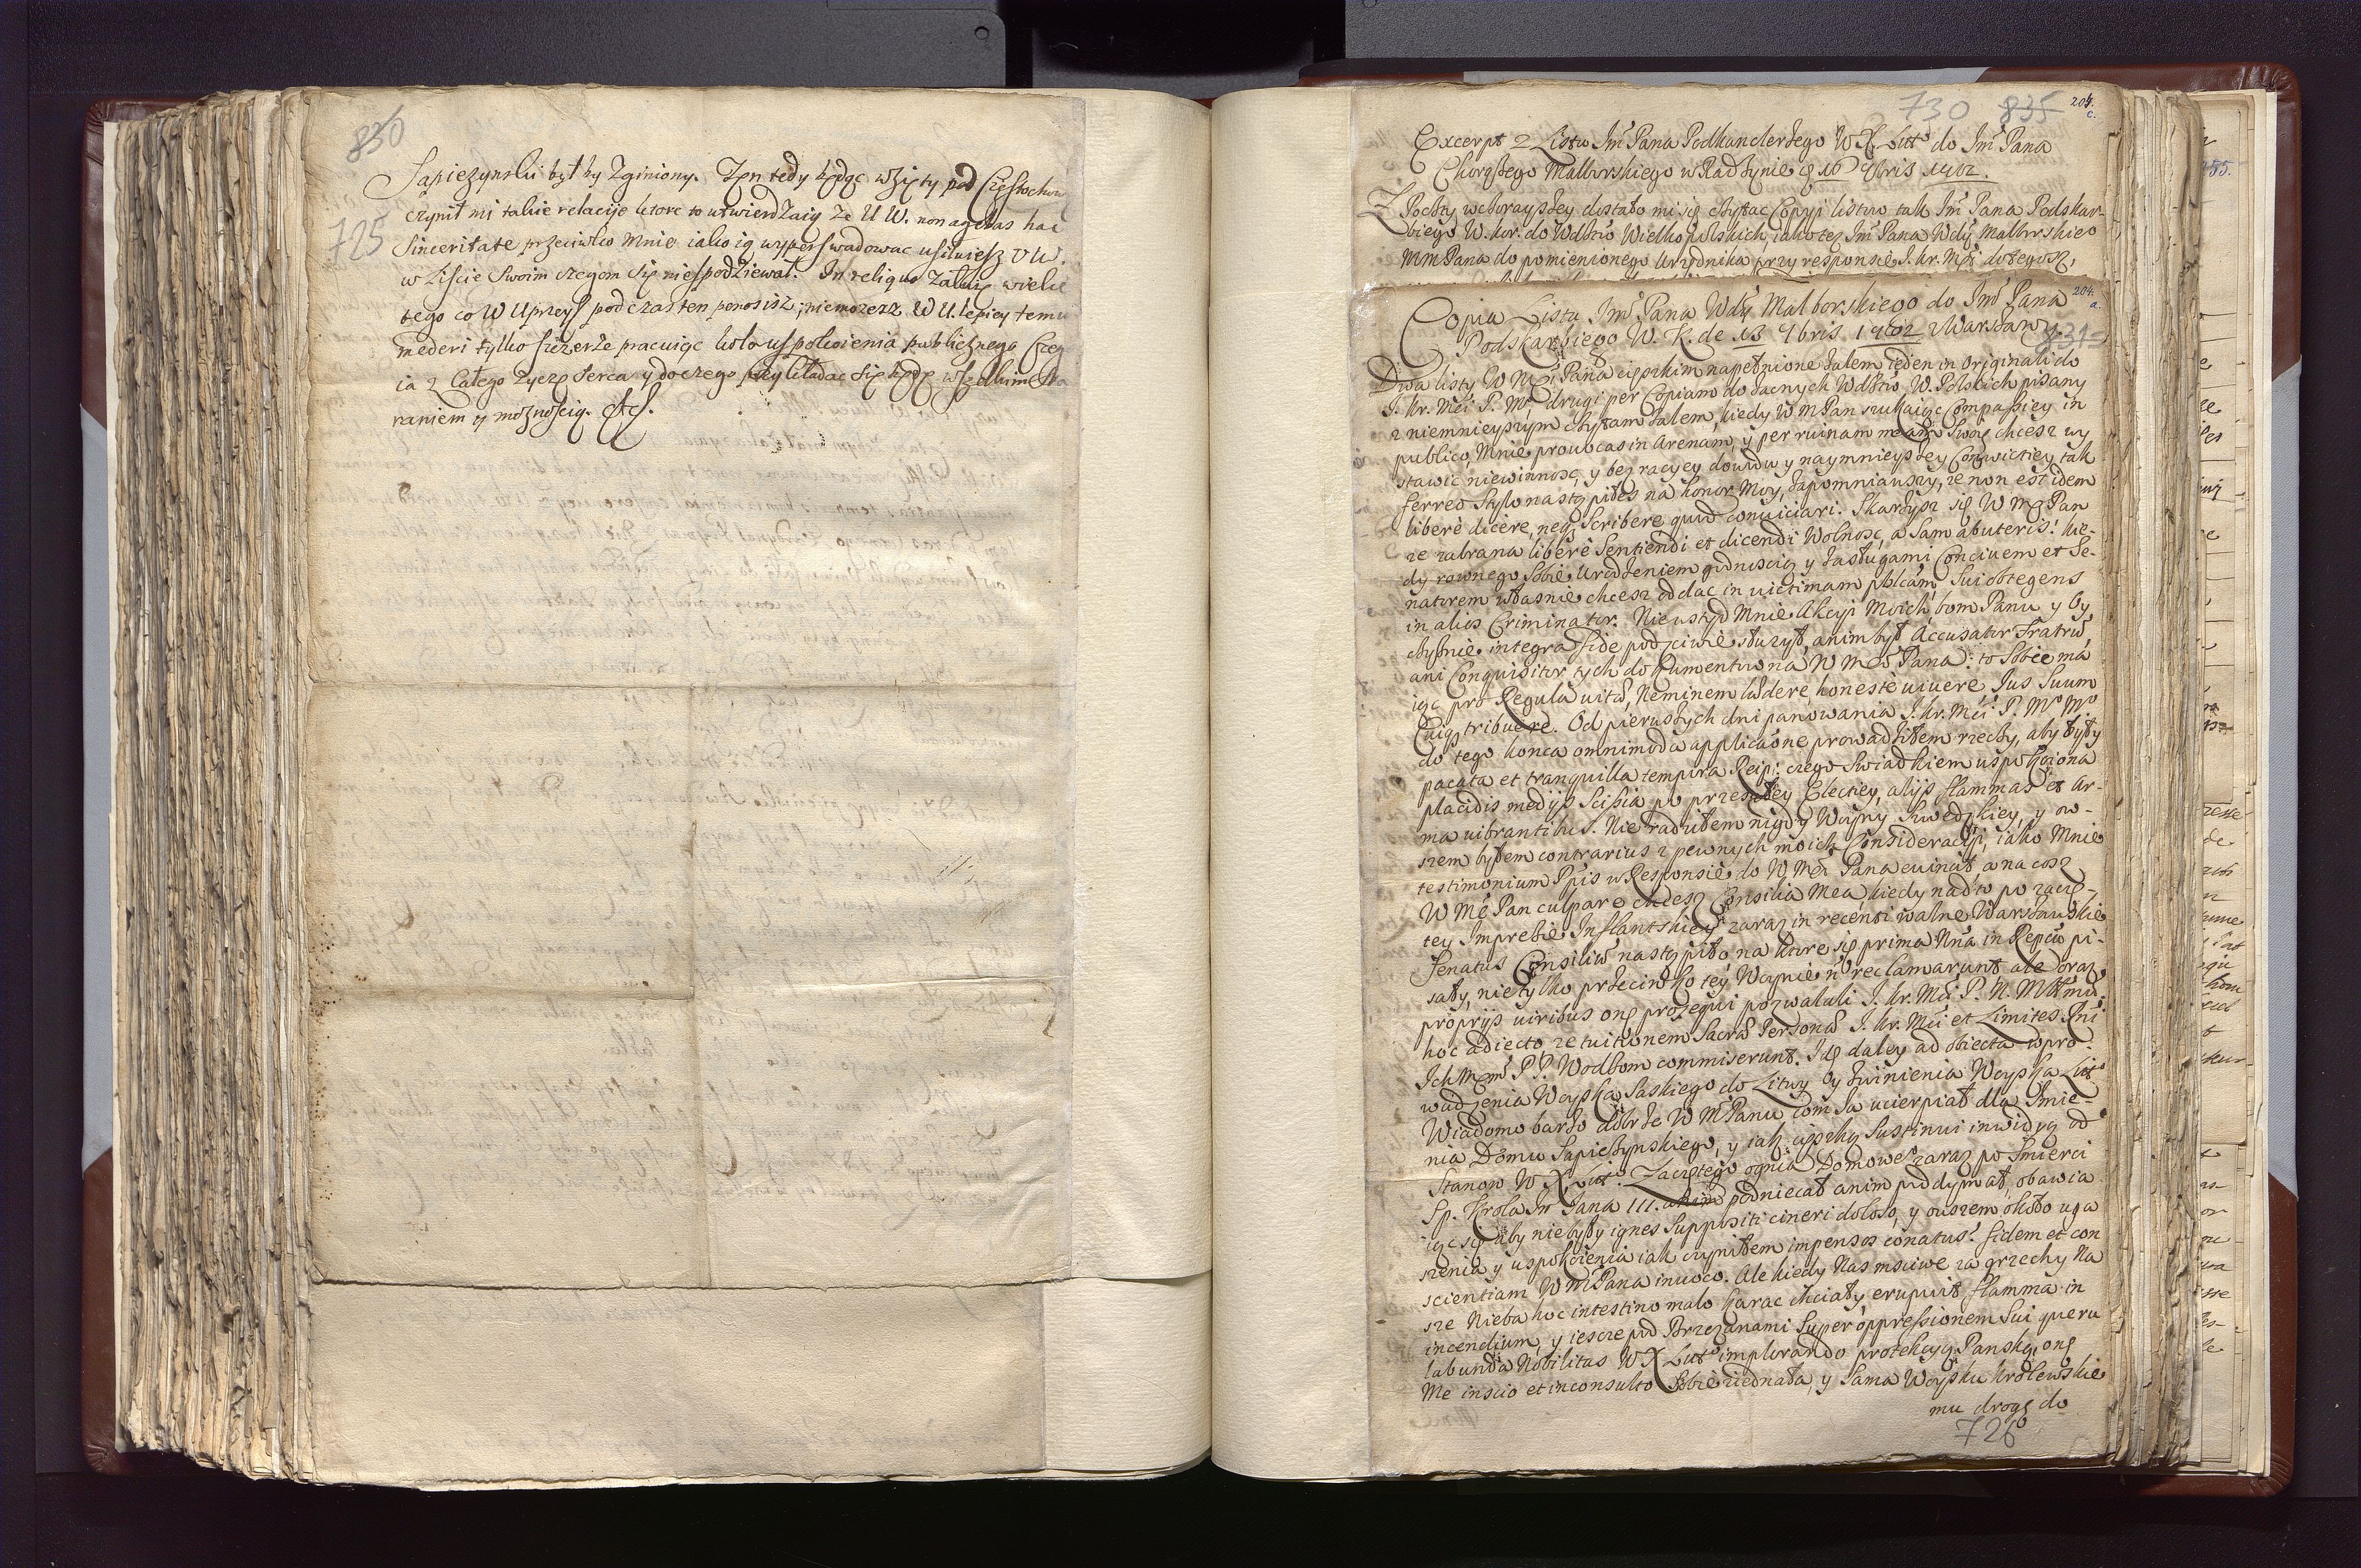 830
725
Sapiezynski był by zginiony. Ten tedy będąc wzięty pod Częstochow
czynił mi takie relacije ktore to utwierdzaią ze U W. non agebas hac
Sinceritate przeciwko mnie iako ią wyperswadowac usiłuiesz V W.
w Liscie Swoim czegom się niespodziewał. In reliquo Załuię wielce
tego co W Uprzey podczas ten ponosisz, niemozesz W U. lepiey temu
mederi tylko sczerze pracuiąc koło uspokoienia publicznego Czeg
ia z Całego zyczę Serca y do czego przykładac się będę wszelkim Sta
raniem y moznoscią. &c.
730 835 204.
c.
Excerpt z Listu Jm Pana Podkanclerzego W X Litt do Jm Pana
Chorążego Malborskiego w Radzynie d 16 9bris 1702.
Z Poczty wczorayszey dostało mi się czytac Copyi listow tak Jm Pana Podskar-
biego W. Kor. do Wdztw Wielkopolskich, iako tez Jm Pana Wdy Malborskieo
M m Pana do pomienionego Urzędnika przy responsie J. Kr. Mci do tegosz,
204.
a.
Copia Listu Jm Pana Wdy Malborskiego do Jm Pana
Podskarbiego W. K. de 13 9bris 1702 z Warszawy
831
Dwa listy W M Pana cięszkim napełnione żalem ieden in Originali do
J. Kr. Mci P. M. drugi per Copiam do zacnych Wdztw W. Polskich pisany
z niemnieyszym czytam żalem, kiedy W m Pan szukaiąc Compassiey in
publico, Mnie prouocas in Arenam, y per ruinam meam Swoię chcesz wy
stawic niewinnosc, y bez racyey dowodu y naymnieyszey Conwictiey tak
ferreo stylo nastąpiłes na honor Moy, zapomniawszy, ze non est idem
liberè dicere, neq. Scribere quod conuiciari. Skarzysz się W mc Pan
ze zabrana liberè Sentiendi et dicendi Wolnosc, a Sam abuteris! kie-
dy rownego Sobie urodzeniem godnoscią y zasługami, Conciuem et Se-
natorem własnie chcesz oddac in uictimam plbcam, Sui obtegens
in alios Criminator. Nie ustyd Mnie Akcyi Moich, bom Panu y Oy
czyznie integra fide podzciwie służył, anim był Accusator Fratrū,
ani Conquisitor tych dokumentow na W M Pana: to Sobie ma
iąc pro Regula uitæ, Neminem lædere, honestè uiuere, Jus Suum
Cuiq tribuere. Od pierwszych dni panowania J. Kr. Mci P. M Mo
do tego konca omnimoda applicaōne prowadziłem rzeczy, aby były
pacata et tranquilla tempora Reip: czego Swiadkiem uspokoiona
placidis medijs Scissia po przeszłey Electiey, alijs flammas et Ar-
ma uibrantibus. Nie radziłem nigdy Woyny Szwedzkiey, y ow-
szem byłem contrarius z pewnych moich Consideracyi, iako Mnie
testimonium Ppis w Responsie do W M Pana euincit, a na cosz
W Mc Pan culpare chcesz Consilia Mea, kiedy nadto po zaczę-
tey Imprezie Inflantskiey zaraz in recenti walne Warszawskie
Senatus Consiliū nastąpiło na ktore się prima Nna in Repca pi-
sały, nietylko przeciwko tey Woynie ñ reclamarunt, ale oraz
proprijs uiribus onę prosequi pozwalali J. Kr. Mci P. N. M
hoc adiecto ze tuitionem Sacræ Personæ J. Kr. Mci et Limites Rni
Ich Mcm P P Wodzom commiserunt. Idę daley ad obiecta wpro-
wadzenia Woyska Saskiego do Litwy y zwinienia Woyska Litt
Wiadomo barzo dobrze W M Panu com Ja ucierpiał dla Imie-
nia Domu Sapieżynskiego, y iak cięszką Sustinui inwidyą od
Stanow W X Litt. Zaczętego ognia Domowe zaraz po Smierci
Sp. Krola Jm Jana III. podniecał anim poddymał, obawia
iąc się aby niebyły ignes Suppositi cineri doloso, y owszem około uga
szenia y uspokoienia iak czyniłem impensos conatus? fidem et con
scientiam W M Pana inuoco. Ale kiedy Nas msciwe za grzechy Na
sze Nieba hoc intestino malo karac chciały, erupuit flamma in
incendium, y iescze pod Brzezanami Super oppressionem Sui queru
labunda Nobilitas W X Litt implorando protekcyą Panską, onę
Me inscio et inconsulto Sobie ziednała, y Sama Woysku Krolewskie
mu drogę do
726